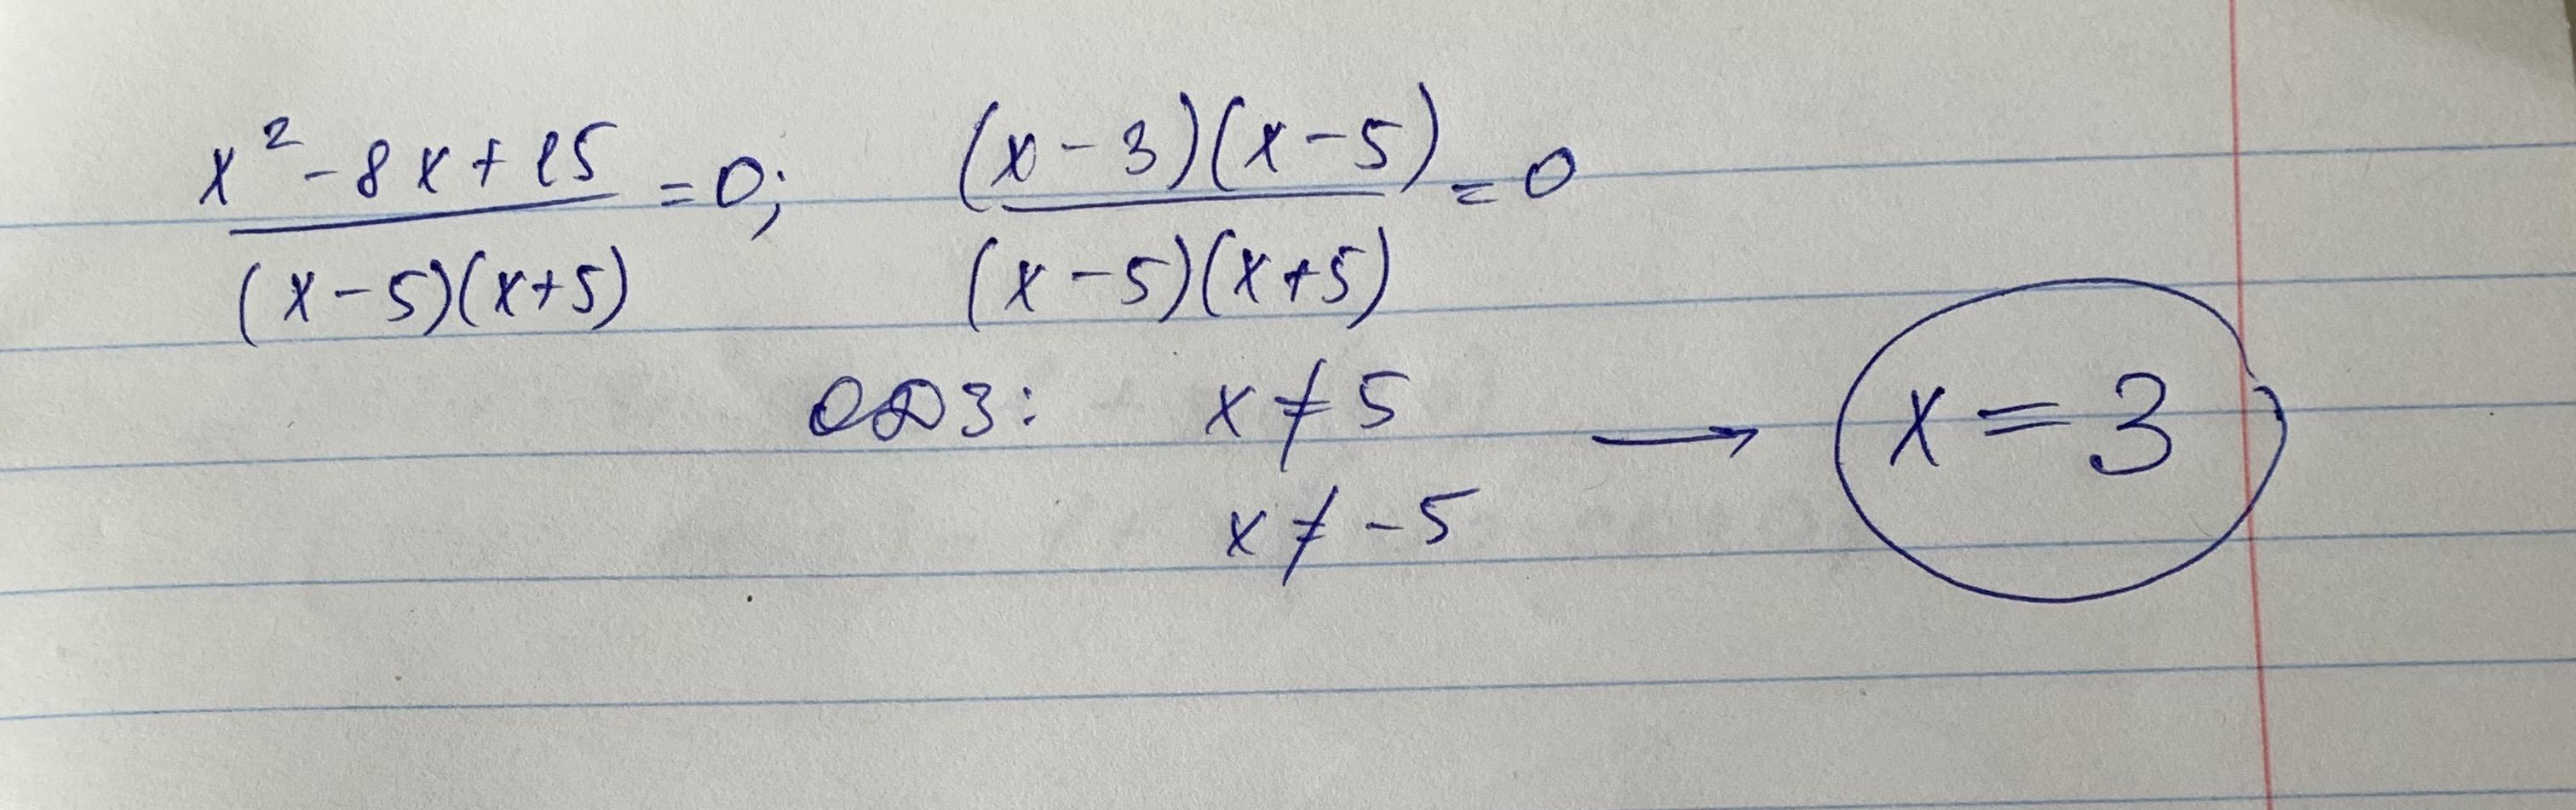 (x² - 8x + 15)/((x-5)(x+5)) = 0; ((x-3)(x-5))/((x-5)(x+5)) = 0
ОДЗ: x ≠ 5 → x = 3
x ≠ -5